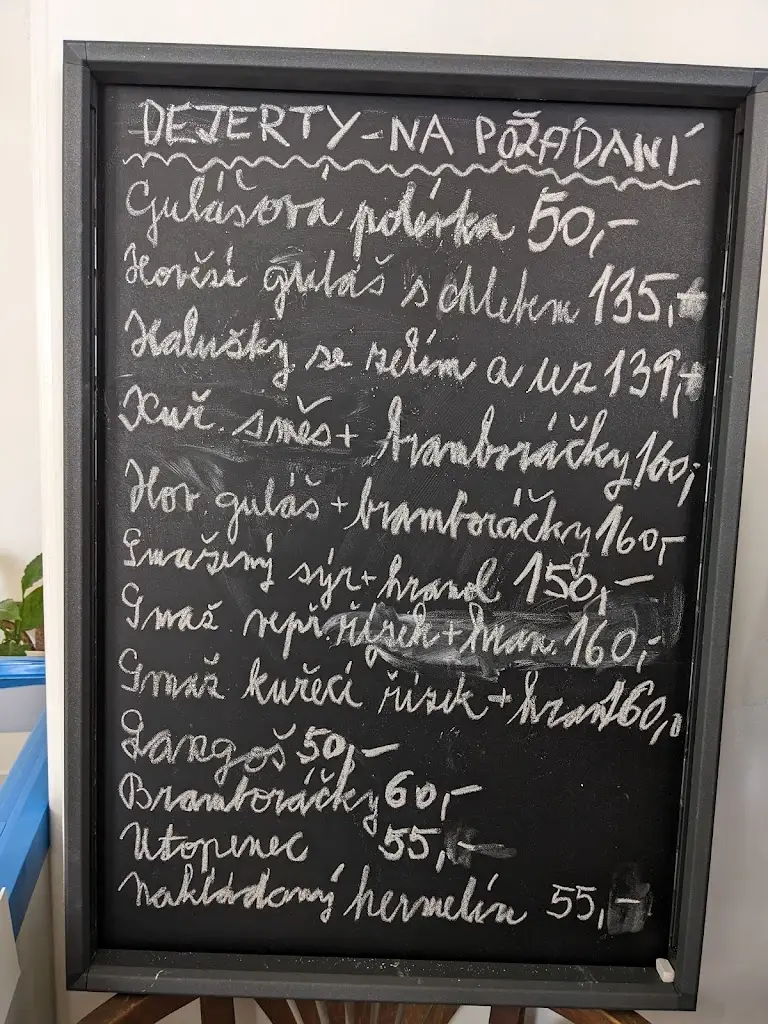 DEJERTY-NA POŽÁDANÍ
Gulášová polévka 50,-
Hověsí guláš s chlebem 135,-
Halušky se zelím a uz 139,-
Kuř. směs+ bramboráčky 160,-
Hov. guláš + bramboráčky 160,-
Smažený sýr + hranol 150,-
Smaž vepř. řízek + hran. 160,-
Smaž kuřecí řízek + hran 160,-
Langoš 50,-
Bramboráčky 60,-
Utopenec 55,-
Nakládaný hermelín 55,-